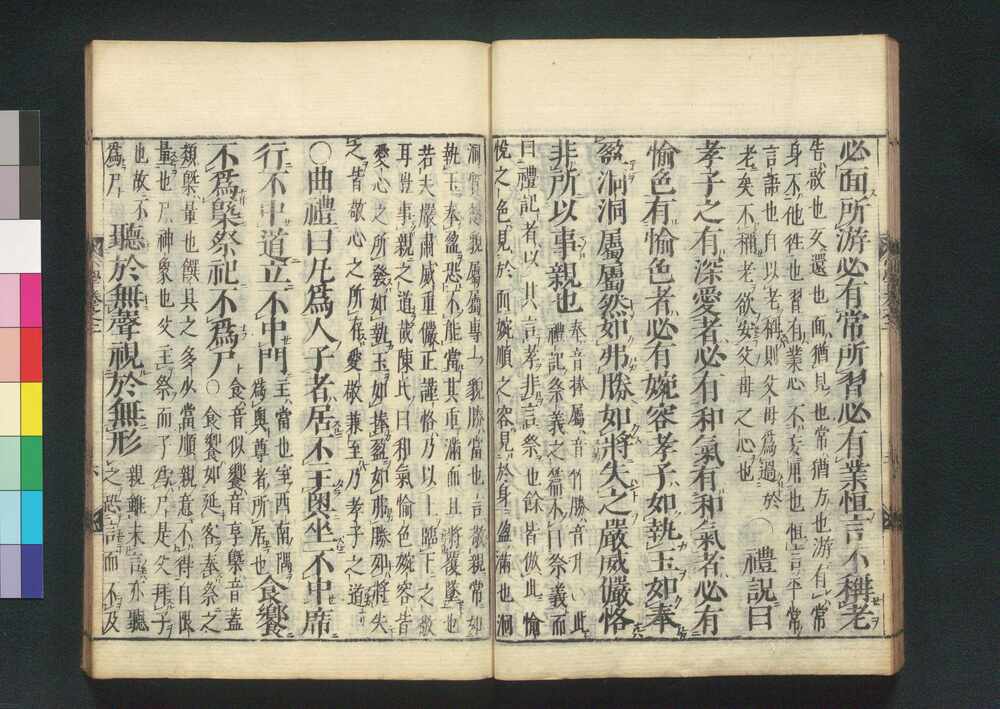 必面所游必有常所習必有業恒言不稱老
告啟也反還也面猶見也常猶方也游有常
身不他徃也習有業心不妄用也恒言平常
言語也自以老稱則父母爲過於
老矣不稱老欲安父母之心也
○禮說曰
孝子之有深愛者必有和氣有和氣者必有
愉色有愉色者必有婉容孝子如執玉如奉
盈洞洞屬屬然如弗勝如將失之嚴威儼恪
非所以事親也
奉音捧屬音竹勝音升○此
禮記祭義之篇不曰祭義而
曰禮記者以其言孝非言祭也餘皆倣此愉
悅之色見於面婉順之容見於身盈滿也洞
洞質慤貌屬屬專一貌勝當也言敬親常如
執玉奉盈恐不能當其重滿而且將覆墜也
若夫嚴肅威重儼正謹恪乃以上臨下之敬
耳豈事親之道哉陳氏曰和氣愉色婉容皆
愛心之所發如執玉如捧盈如弗勝如將失
之皆敬心之所存愛敬兼至乃孝子之道
○曲禮曰凡爲人子者居不主奧坐不中席
行不中道立不中門
主當也室西南隅
爲奧尊者所居也
食饗
不爲槩祭祀不爲尸
食音似饗音享槩音蓋
○食饗如延客奉祭之
類槩量也饌具之多少當順親意不得自限
量也尸神象也父主祭而子爲尸是父拜子
也故不
爲尸
聽於無聲視於無形
親雖未言亦聽
之恐言而不及